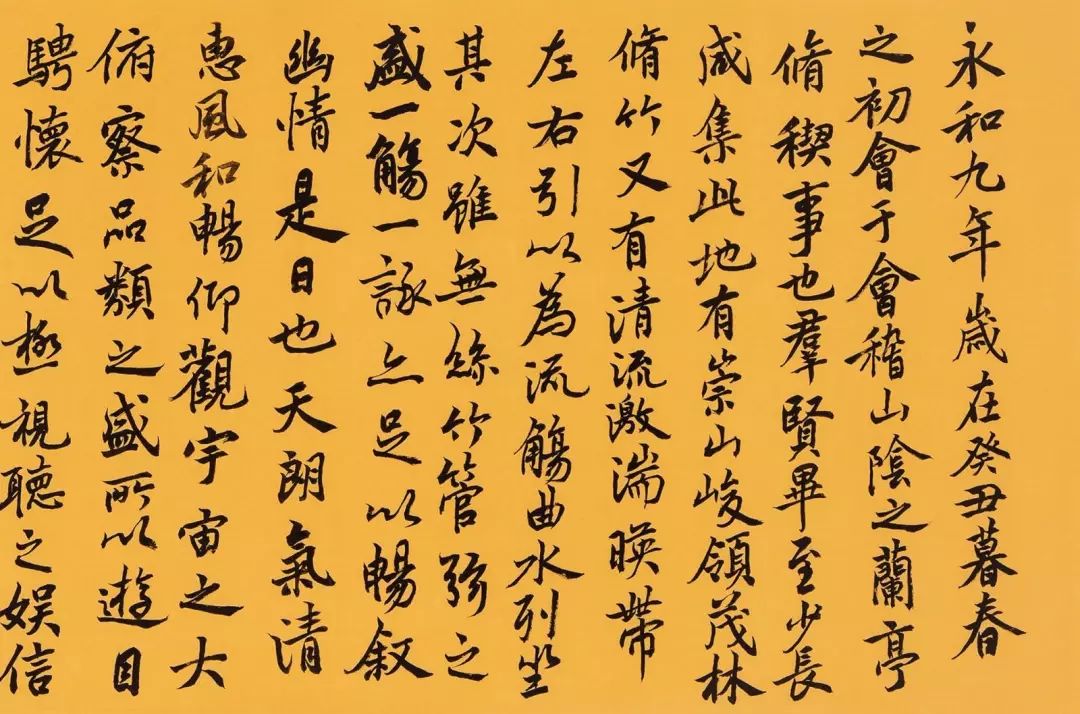 永和九年歲在癸丑暮春
之初會于會稽山陰之蘭亭
脩稧事也羣賢畢至少長
咸集此地有崇山峻領茂林
脩竹又有清流激湍暎帶
左右引以為流觴曲水列坐
其次雖無絲竹管弦之
盛一觴一詠亦足以暢敘
幽情是日也天朗氣清
惠風和暢仰觀宇宙之大
俯察品類之盛所以遊目
騁懷足以極視聽之娛信